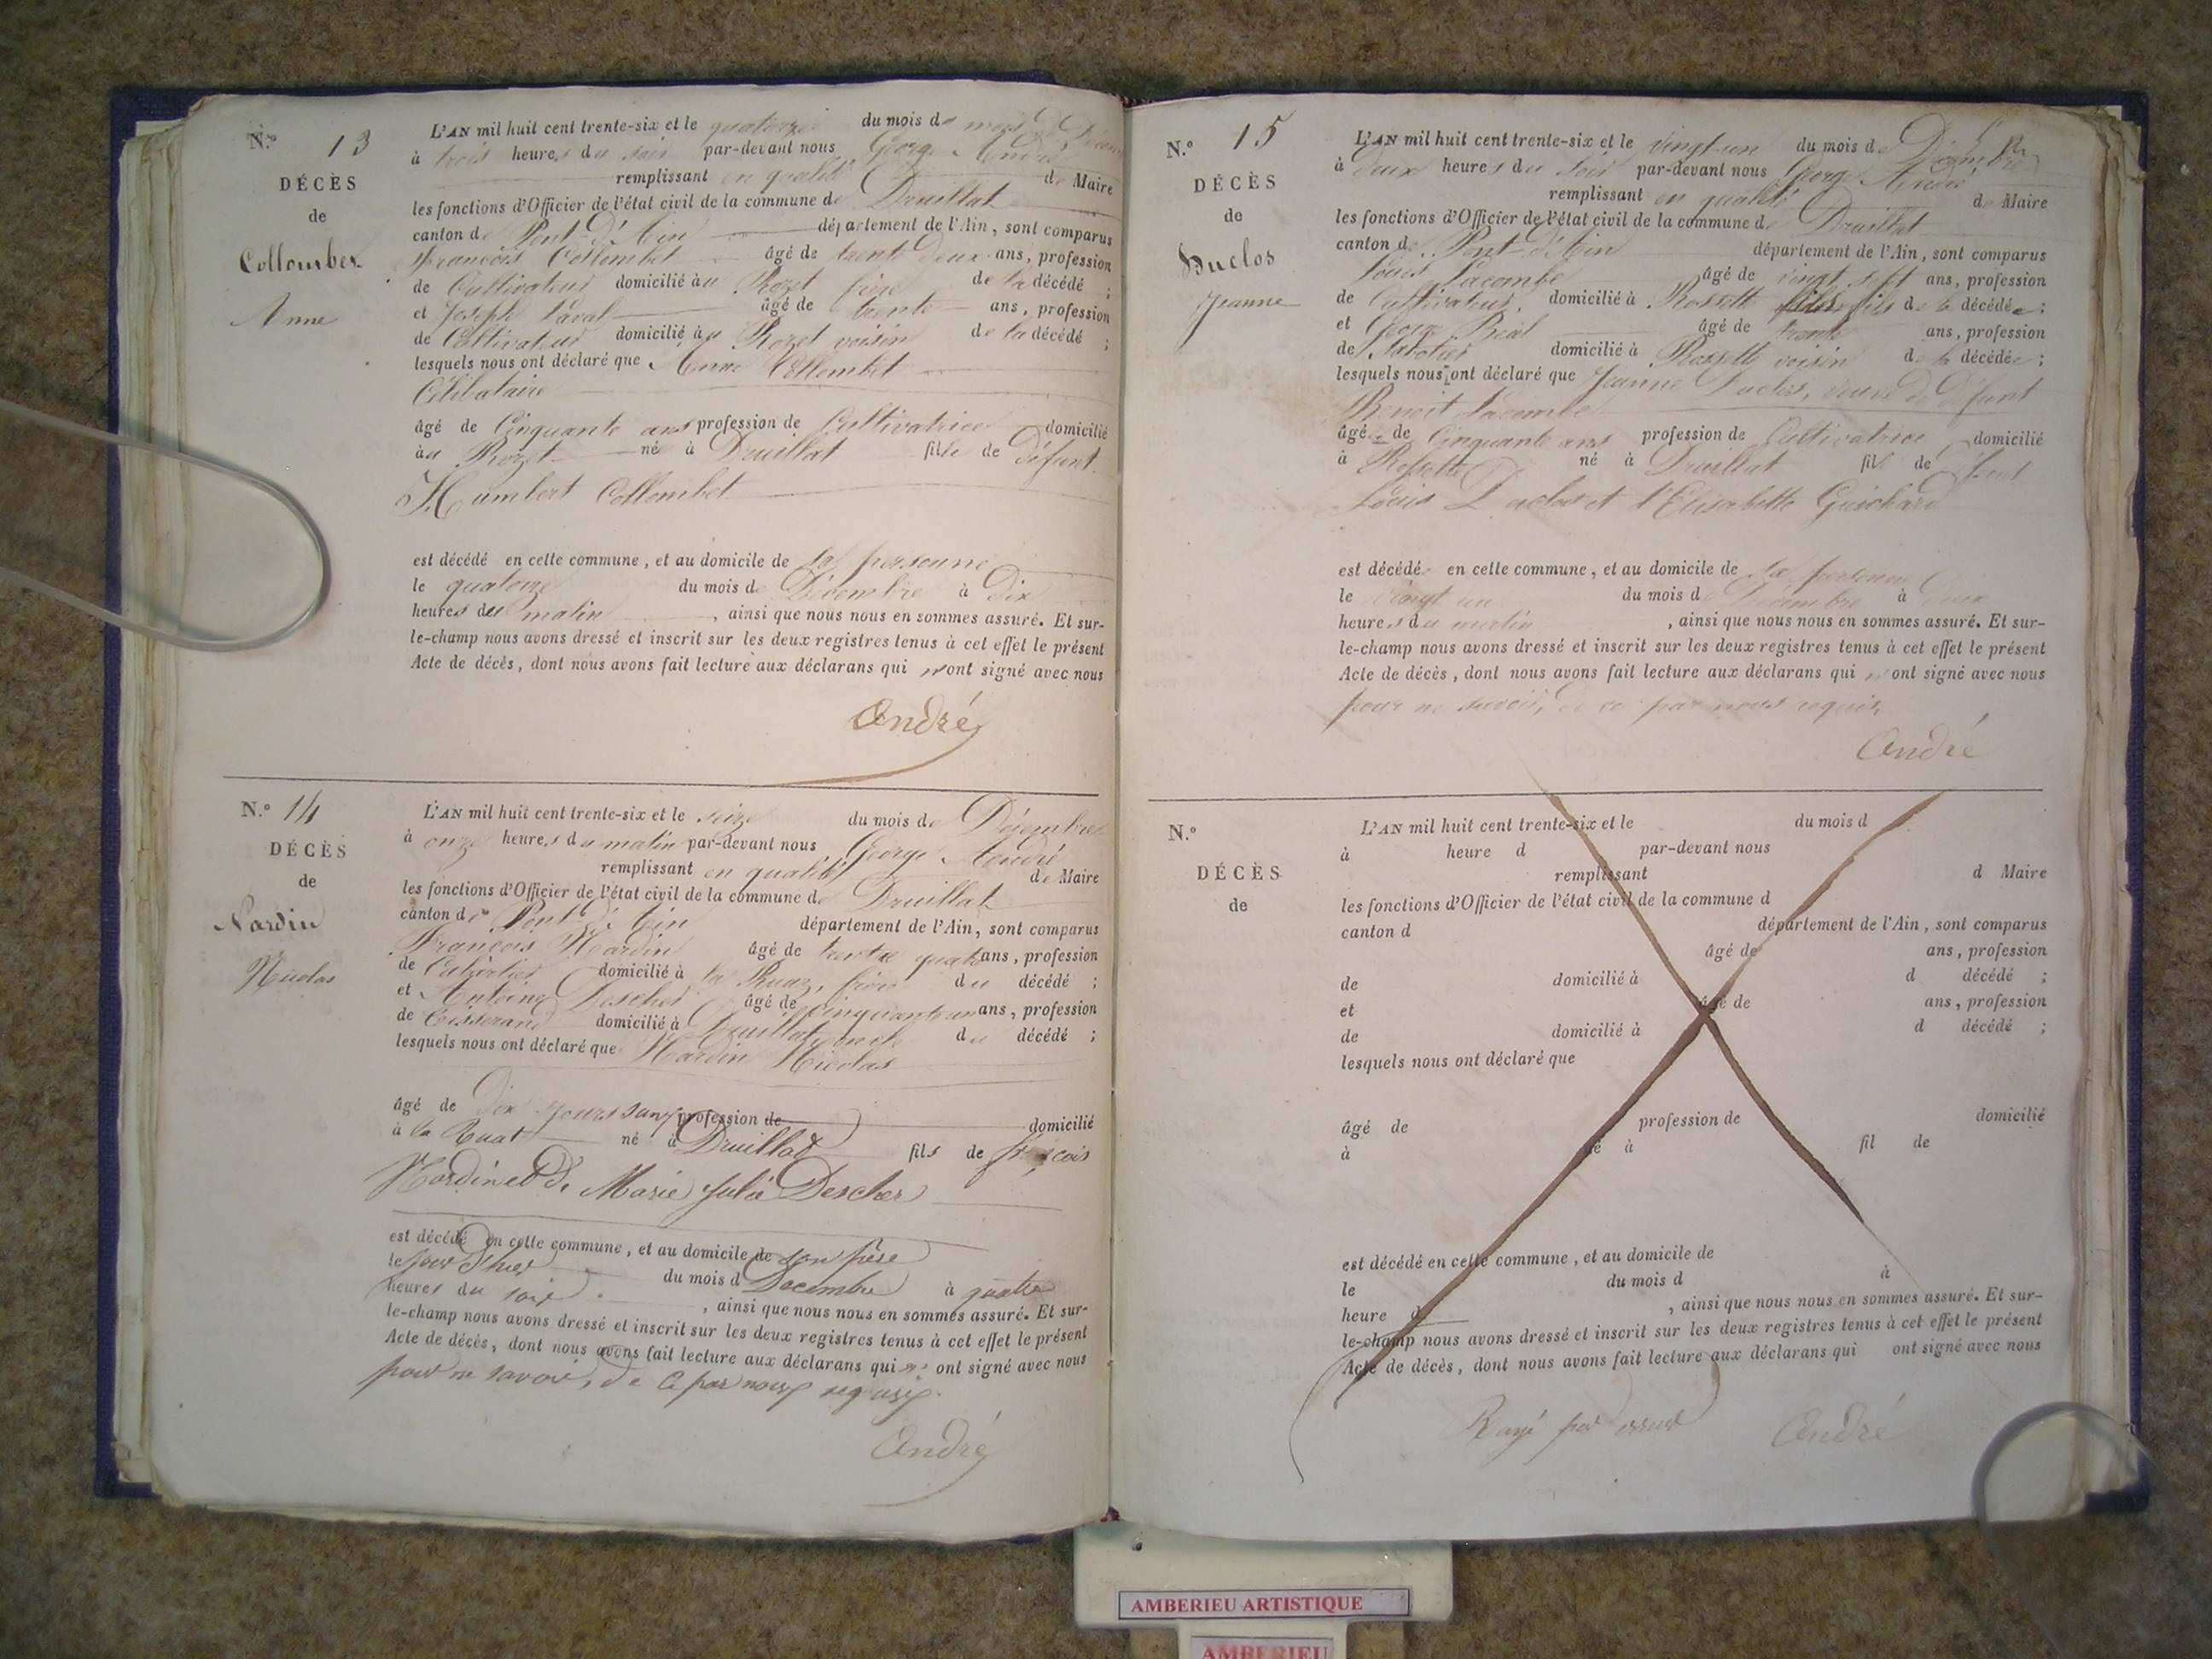 N.° 13
DÉCÈS
de
Collombet
Anne
L'AN mil huit cent trente-six et le quatorze du mois de mois Décembre
à trois heures du soir par-devant nous George André
remplissant en qualité de Maire
les fonctions d'Officier de l'état civil de la commune de Druillat
canton de Pont-d'Ain département de l'Ain, sont comparus
François Collombet âgé de trente deux ans, profession
de Cultivateur domicilié au Rozet frère de la décédé ;
et Joseph Laval âgé de trente ans, profession
de Cultivateur domicilié au Rozet voisin de la décédé ;
lesquels nous ont déclaré que Anne Collombet
Célibataire
âgé de Cinquante ans profession de Cultivatrice domicilié
au Rozet né à Druillat fille de défunt
Humbert Collombet
est décédé en cette commune, et au domicile de sa personne
le quatorze du mois de Décembre à Dix
heures du matin, ainsi que nous nous en sommes assuré. Et sur-
le-champ nous avons dressé et inscrit sur les deux registres tenus à cet effet le présent
Acte de décès, dont nous avons fait lecture aux déclarans qui n'ont signé avec nous
André
N.° 14
DÉCÈS
de
Nardin
Nicolas
L'AN mil huit cent trente-six et le seize du mois de Décembre
à onze heures du matin par-devant nous George André
remplissant en qualité de Maire
les fonctions d'Officier de l'état civil de la commune de Druillat
canton de Pont-d'Ain département de l'Ain, sont comparus
François Nardin âgé de trente quatre ans, profession
de domicilié à la Ruaz, père du décédé ;
et Antoine Descher âgé de cinquante un ans, profession
de Tisserand domicilié à Druillat oncle du décédé ;
lesquels nous ont déclaré que Nardin Nicolas
âgé de Dix jours sans profession de domicilié
à la Ruat né à Druillat fils de françois
Nardin et de Marie Julie Descher
est décédé en cette commune, et au domicile de son père
le jour d'hier du mois d Décembre à quatre
heures du soir, ainsi que nous nous en sommes assuré. Et sur-
le-champ nous avons dressé et inscrit sur les deux registres tenus à cet effet le présent
Acte de décès, dont nous avons fait lecture aux déclarans qui n' ont signé avec nous
pour ne savoir, de ce par nous requis.
André
N.° 15
DÉCÈS
de
Duclos
Jeanne
L'AN mil huit cent trente-six et le vingt-un du mois de Décembre
à deux heures du soir par-devant nous George André
remplissant en qualité de Maire
les fonctions d'Officier de l'état civil de la commune de Druillat
canton de Pont-d'Ain département de l'Ain, sont comparus
Louis Lacombe âgé de vingt sept ans, profession
de Cultivateur domicilié à Rossette fils de la décédée ;
et George Béal âgé de trente ans, profession
de Sabotier domicilié à Rossette voisin de la décédée ;
lesquels nous ont déclaré que Jeanne Duclos, veuve de défunt
Benoit Lacombe
âgée de Cinquante ans profession de Cultivatrice domicilié
à Rossette né à Druillat fil de défunt
Louis Duclos et d'Elisabette Guichard
est décédée en cette commune, et au domicile de sa personne
le vingt un du mois de Décembre à deux
heures du matin, ainsi que nous nous en sommes assuré. Et sur-
le-champ nous avons dressé et inscrit sur les deux registres tenus à cet effet le présent
Acte de décès, dont nous avons fait lecture aux déclarans qui n'ont signé avec nous
pour ne savoir, de ce par nous requis.
André
N.°
DÉCÈS
de
L'AN mil huit cent trente-six et le du mois d
à heure d par-devant nous
remplissant d Maire
les fonctions d'Officier de l'état civil de la commune d
canton d département de l'Ain, sont comparus
âgé de ans, profession
de domicilié à d décédé ;
et âgé de ans, profession
de domicilié à d décédé ;
lesquels nous ont déclaré que
âgé de profession de domicilié
à né à fil de
est décédé en cette commune, et au domicile de
le du mois d à
heure d , ainsi que nous nous en sommes assuré. Et sur-
le-champ nous avons dressé et inscrit sur les deux registres tenus à cet effet le présent
Acte de décès, dont nous avons fait lecture aux déclarans qui ont signé avec nous
Rayé par erreur André
AMBERIEU ARTISTIQUE
AMBERIEU